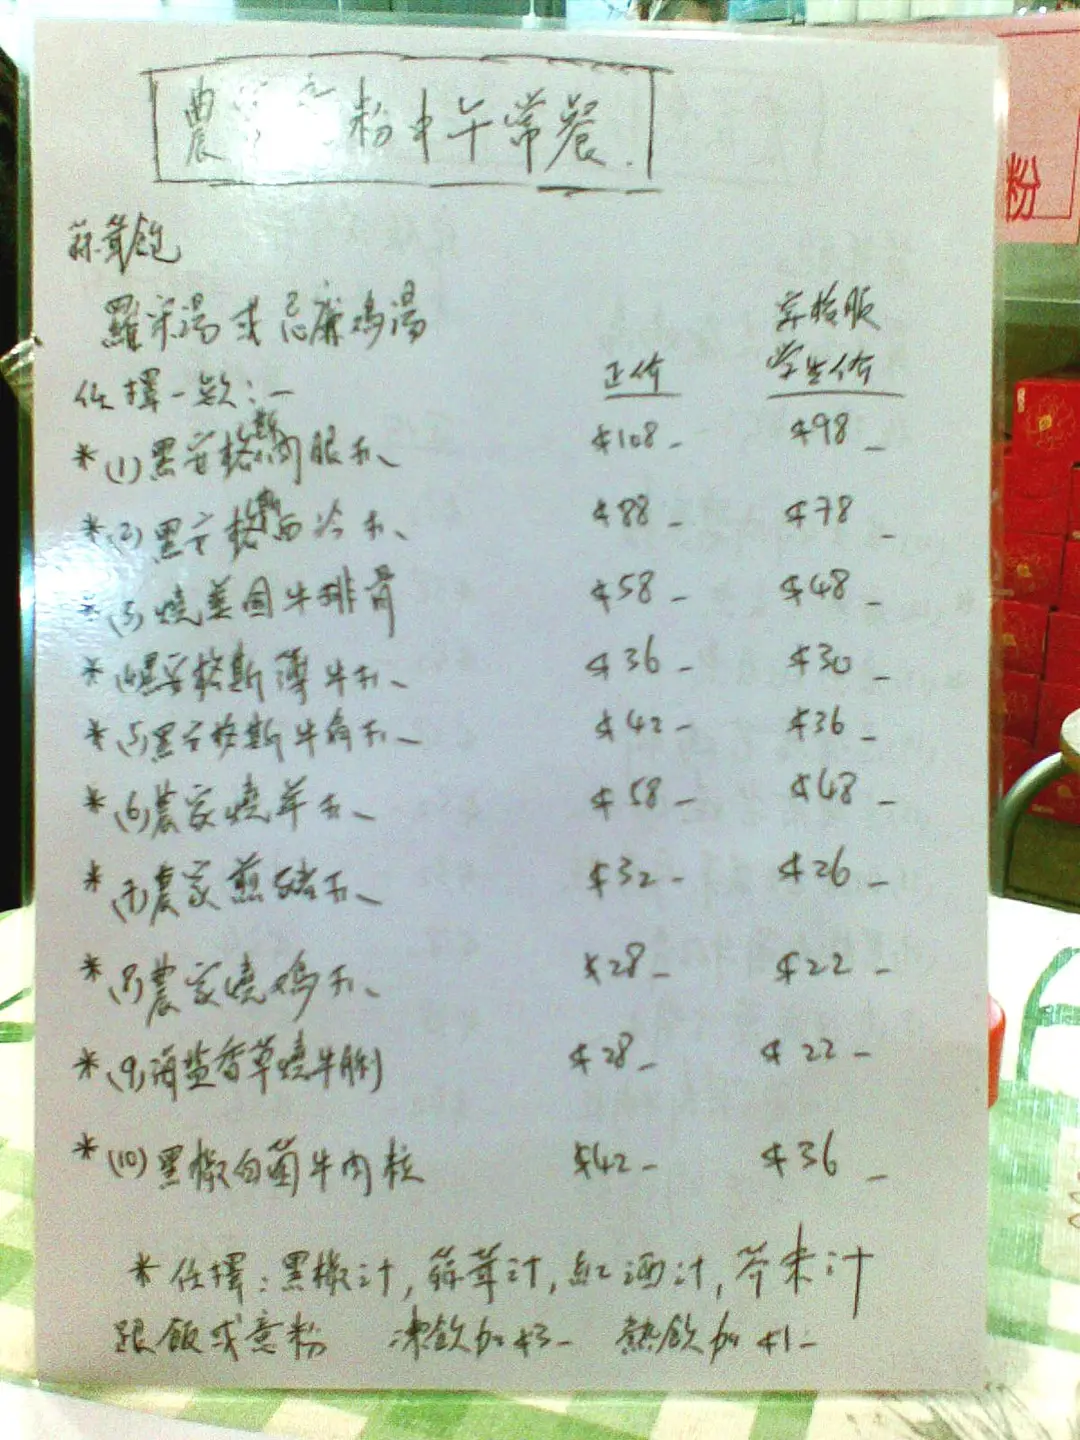 農 粉中午常餐
蒜茸飽
羅宋湯或忌廉鸡湯
任擇一款:-
正价
穿校服
学生价
*(1)黑安格斯肉眼扒 $108- $98-
*(2)黑安格斯西冷扒 $88- $78-
*(3)燒美國牛排骨 $58- $48-
*(4)黑安格斯薄牛扒 $36- $30-
*(5)黑安格斯牛角扒 $42- $36-
*(6)農家燒羊扒 $58- $48-
*(7)農家煎猪扒 $32- $26-
*(8)農家燒鸡扒 $28- $22-
*(9)海盐香草燒牛脷 $28- $22-
*(10)黑椒白菌牛肉粒 $42- $36-
*任擇:黑椒汁,蒜茸汁,紅酒汁,芥末汁
跟飯或意粉 凍飲加$3- 熱飲加$1-
粉